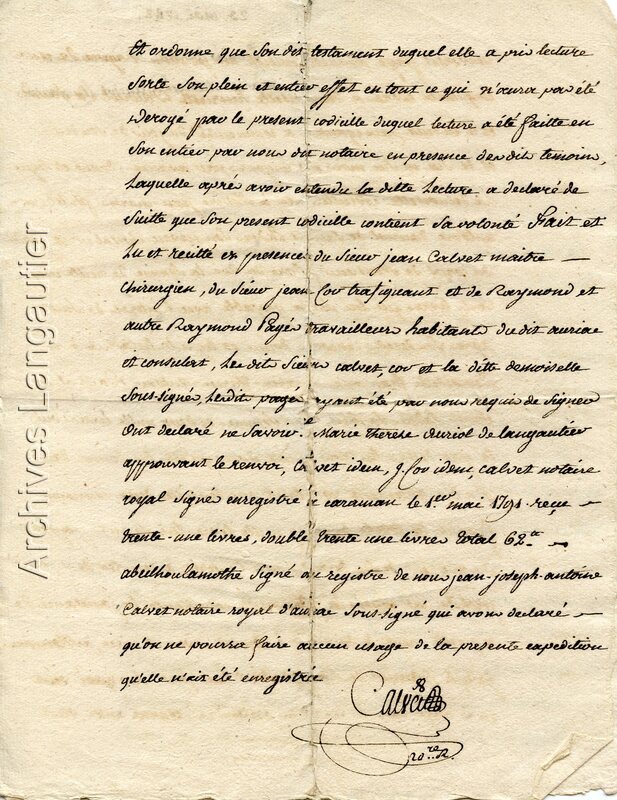 Et ordonne que son dit testament duquel elle a pris lecture
sorte son plein et entier effet en tout ce qui n'aura pas été
derogé par le present codicille duquel lecture a été faitte en
son entier par nous dit notaire en presence desdit temoins,
Laquelle aprés avoir entendu la ditte lecture a declaré de
suitte que son present codicille contient sa volonté fait et
Lu et recitté en presence du sieur jean Calvet maitre —
chirurgien, du sieur jean Cov trafiquant et de Raymond et
autre Raymond Pagés travailleurs habitants dudit auriac
et consulert, les dit sieurs calvet, cov et la ditte demoiselle
sous-signés, lesdit pagés ayant été par nous requis de signer
ont declaré ne savoir. Marie therese auriol de langautier
approuvant le renvoi, Calvet idem, J. Cov idem, calvet notaire
royal signé enregistré à caraman le 1.er mai 1791 reçu —
trente-une livres, double trente une livres total 62.tt —
abeilhoulamothe signé au registre de nous jean-joseph-antoine
Calvet notaire royal d'auriac sous-signé qui avons declaré —
qu'on ne pourra faire aucun usage de la presente expedition
qu'elle n'ait été enregistrée
Calvet
no.re R.
Archives Langautier